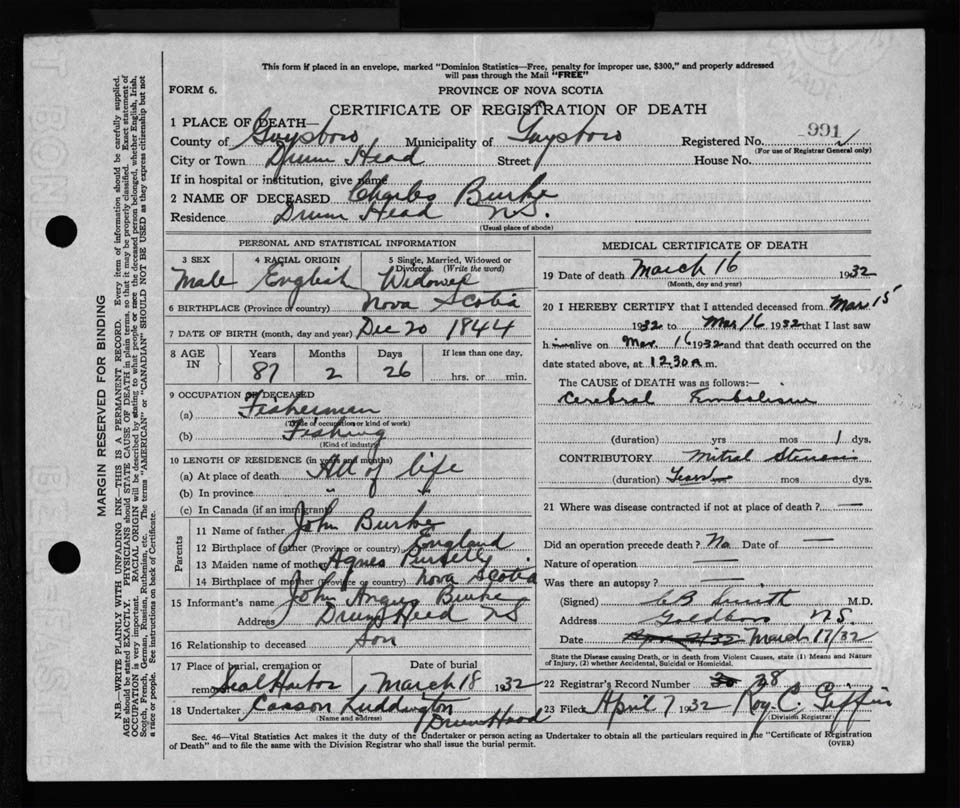 This form if placed in an envelope, marked "Dominion Statistics—Free, penalty for improper use, $300," and properly addressed
will pass through the Mail "FREE"
FORM 6. PROVINCE OF NOVA SCOTIA
CERTIFICATE OF REGISTRATION OF DEATH
1 PLACE OF DEATH—
County of Guysboro Municipality of Guysboro Registered No. 991
(For use of Registrar General only)
City or Town Drum Head Street House No.
If in hospital or institution, give name
2 NAME OF DECEASED Charles Burke
Residence Drum Head N.S.
(Usual place of abode)
PERSONAL AND STATISTICAL INFORMATION
3 SEX 4 RACIAL ORIGIN 5 Single, Married, Widowed or
Divorced. (Write the word)
Male English Widower
6 BIRTHPLACE (Province or country) Nova Scotia
7 DATE OF BIRTH (month, day and year) Dec 20 1844
8 AGE IN Years Months Days If less than one day.
87 2 26 hrs. or min.
9 OCCUPATION OF DECEASED
(a) Fisherman
(Trade or occupation or kind of work)
(b) Fishing
(Kind of industry)
10 LENGTH OF RESIDENCE (in years and months)
(a) At place of death All of life
(b) In province " "
(c) In Canada (if an immigrant)
Parents
11 Name of father John Burke
12 Birthplace of father (Province or country) England
13 Maiden name of mother Agnes
14 Birthplace of mother (Province or country) Nova Scotia
15 Informant's name John Angus Burke
Address Drum Head NS
16 Relationship to deceased Son
17 Place of burial, cremation or Date of burial
removal Seal Harbor March 18 1932
18 Undertaker Luddington
(Name and address) Drum Head
MEDICAL CERTIFICATE OF DEATH
19 Date of death March 16 1932
(Month, day and year)
20 I HEREBY CERTIFY that I attended deceased from Mar 15
1932 to Mar 16 1932 that I last saw
him alive on Mar. 16 1932 and that death occurred on the
date stated above, at 12.30 a m.
The CAUSE OF DEATH was as follows:—
Cerebral Embolism
(duration) yrs mos 1 dys.
CONTRIBUTORY Mitral Stenosis
(duration) Years mos dys.
21 Where was disease contracted if not at place of death? —
Did an operation precede death? No Date of —
Nature of operation —
Was there an autopsy? —
(Signed) Smith M.D.
Address Goldboro N.S.
Date March 17/32
State the Disease causing Death, or in death from Violent Causes, state (1) Means and Nature
of Injury, (2) whether Accidental, Suicidal or Homicidal.
22 Registrar's Record Number 28
23 Filed April 7 1932 Roy C. Giffin
(Division Registrar)
Sec. 46—Vital Statistics Act makes it the duty of the Undertaker or person acting as Undertaker to obtain all the particulars required in the "Certificate of Registration
of Death" and to file the same with the Division Registrar who shall issue the burial permit. (OVER)
MARGIN RESERVED FOR BINDING
N.B.—WRITE PLAINLY WITH UNFADING INK—THIS IS A PERMANENT RECORD. Every item of information should be carefully supplied.
AGE should be stated EXACTLY. PHYSICIANS should STATE CAUSE OF DEATH in plain terms, so that it may be properly classified. Exact statement of
OCCUPATION is very important. RACIAL ORIGIN will be described by stating to what people or race the deceased person belonged, whether English, Irish,
Scotch, French, German, Russian, Ruthenian, etc. The terms "AMERICAN" or "CANADIAN" SHOULD NOT BE USED as they express citizenship but not
a race or people. See instructions on back of Certificate.